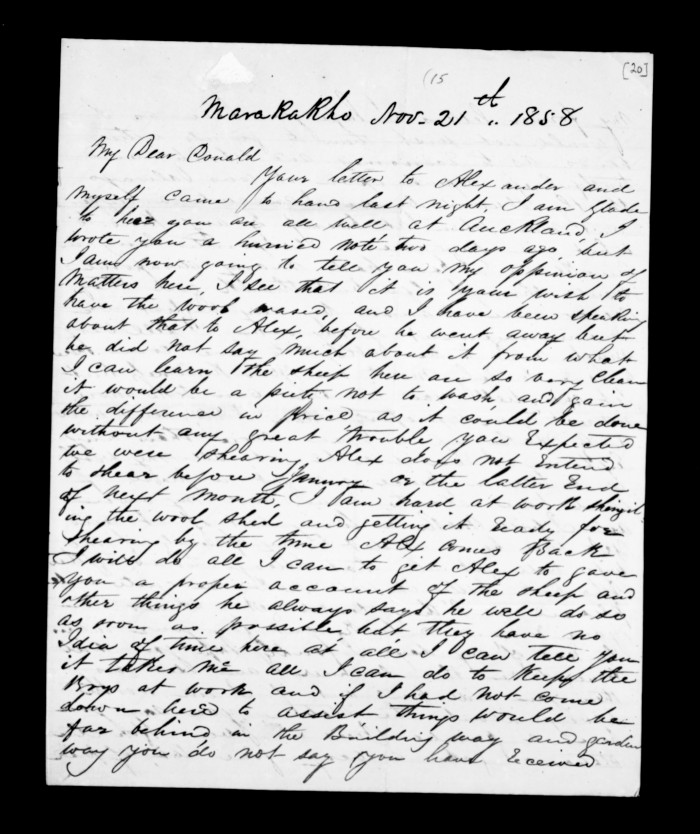 [20]
(15
Marakakho Nov. 21th .. 1858
My Dear Donald
Your letter to Alexander and
myself came to hand last night I am Glade
to hear you are all well at Auckland, I
wrote you a hurried note two days ago, but
I am now going to tell you my oppinion of
Matters here, I see that it is your wish to
have the wool wased, and I have been speaking
about that to Alex, before he went away but
he did not say much about it from what
I can learn & the sheep here are so very Clean
it would be a pitty not to wash, and gain
the difference in price as it could be done
without any great trouble you Expected
we were shearing Alex does not Entend
to shear before January or the latter End
of next month, I am hard at work shingil
ing the wool shed and getting it ready for
shearing by the time Alex comes Back
I will do all I can to get Alex to gave
you a proper account of the sheep and
other things he always says he will do so
as soon as possible, but they have no
Idia of time here at all I can tell you
it takes me all I can do to Keep the
Boys at work, and if I had not come
down here to assist things would be
far behind in the Building way and garden
way you do not say you have Received